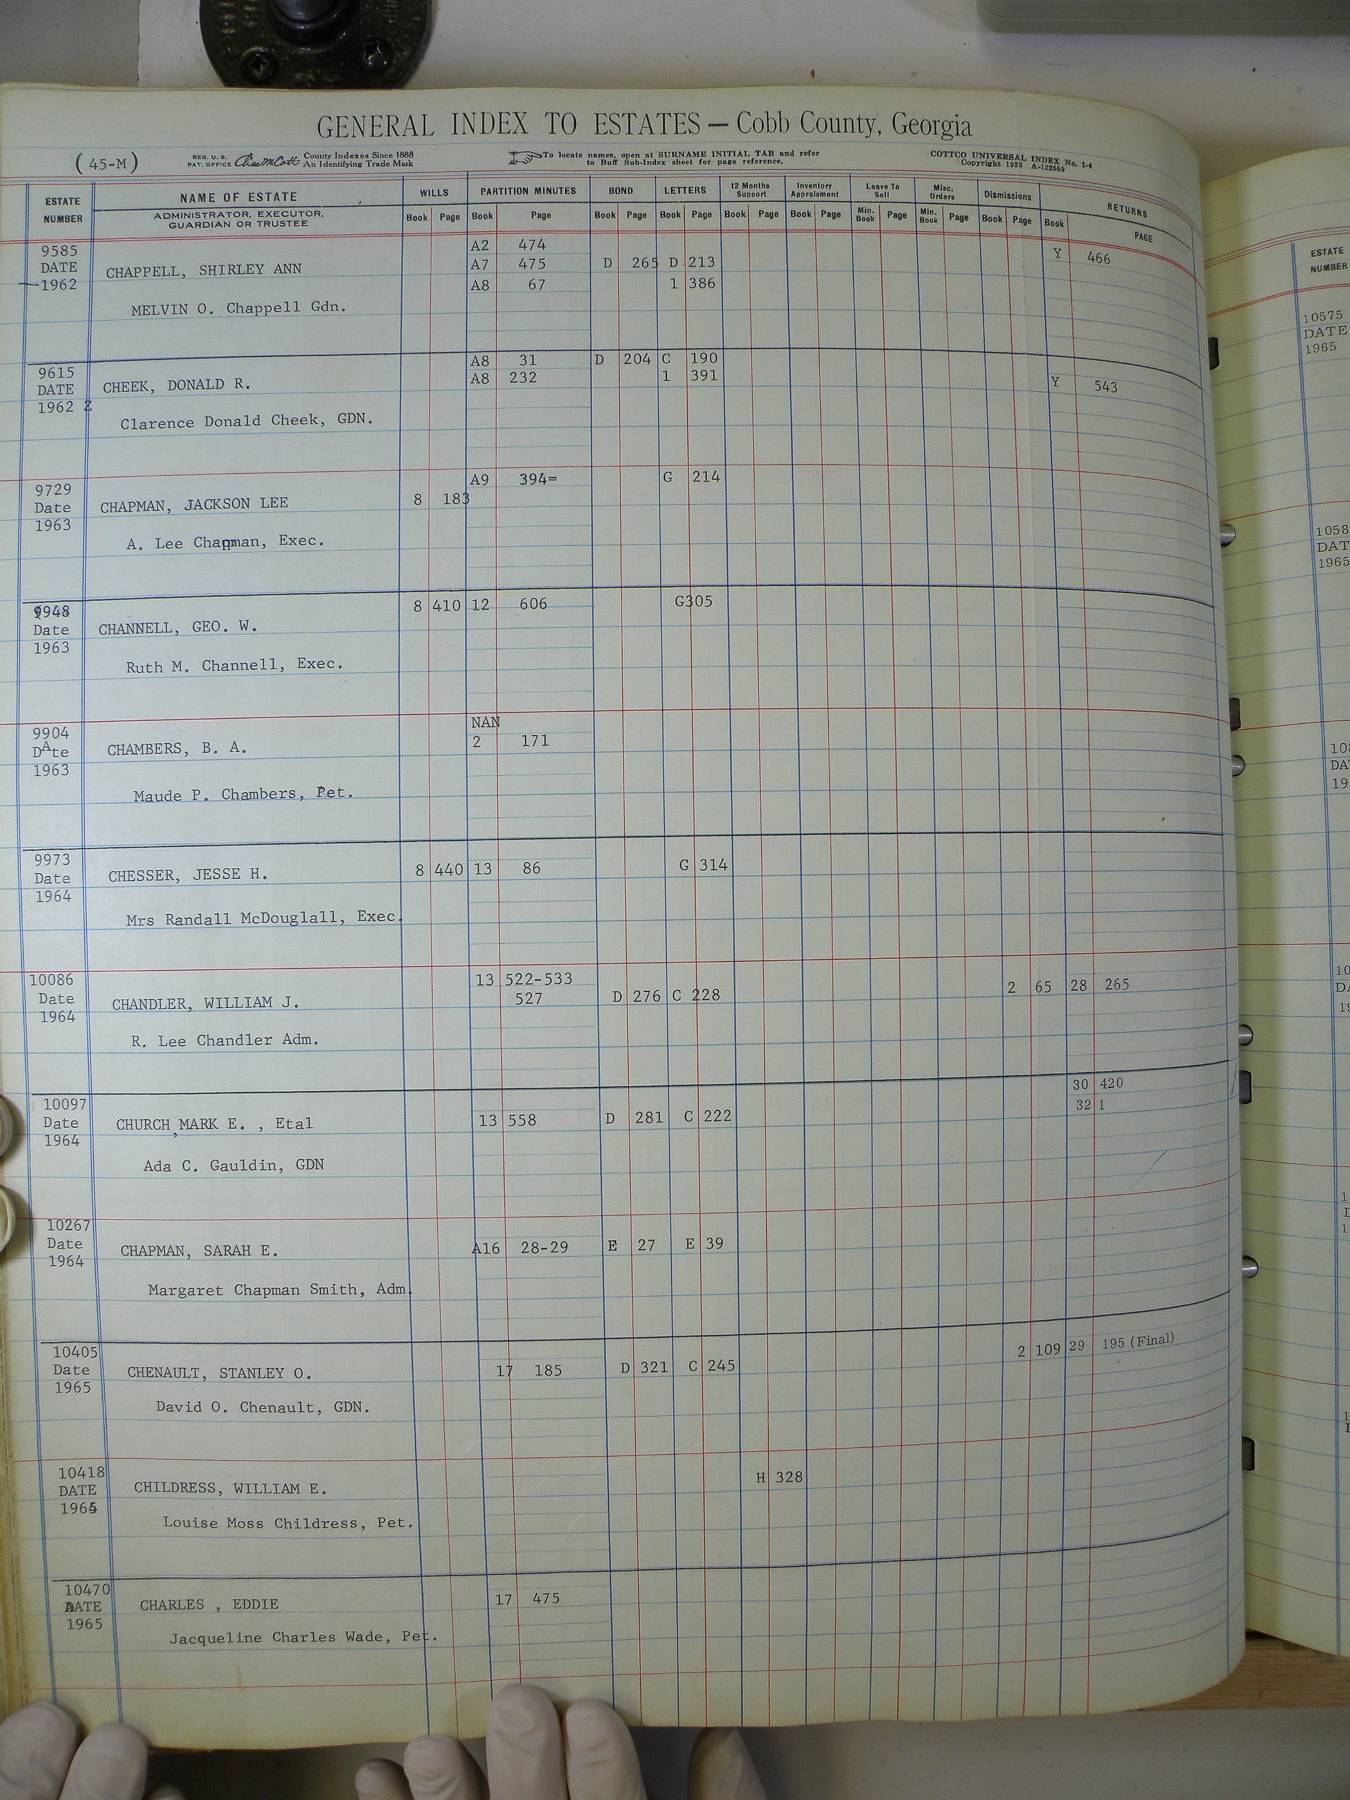 GENERAL INDEX TO ESTATES — Cobb County, Georgia
(45-M)
REG. U.S. PAT. OFFICE County Indexes Since 1888 An Identifying Trade Mark
To locate names, open at SURNAME INITIAL TAB and refer to Buff Sub-Index sheet for page reference.
COTTCO UNIVERSAL INDEX No. 1-4
Copyright 1933 A-122669
ESTATE NUMBER NAME OF ESTATE WILLS PARTITION MINUTES BOND LETTERS 12 Months Support Inventory Appraisment Leave To Sell Misc. Orders Dismissions RETURNS
ADMINISTRATOR, EXECUTOR, GUARDIAN OR TRUSTEE Book Page Book Page Book Page Book Page Book Page Book Page Min. Book Page Min. Book Page Book Page Book PAGE
9585 A2 474
DATE CHAPPELL, SHIRLEY ANN A7 475 D 265 D 213 Y 466
1962 A8 67 1 386
MELVIN O. Chappell Gdn.
9615 A8 31 D 204 C 190
DATE CHEEK, DONALD R. A8 232 1 391 Y 543
1962
Clarence Donald Cheek, GDN.
9729 A9 394= G 214
Date CHAPMAN, JACKSON LEE 8 183
1963
A. Lee Chapman, Exec.
9948 8 410 12 606 G305
Date CHANNELL, GEO. W.
1963
Ruth M. Channell, Exec.
9904 NAN
DAte CHAMBERS, B. A. 2 171
1963
Maude P. Chambers, Pet.
9973
Date CHESSER, JESSE H. 8 440 13 86 G 314
1964
Mrs Randall McDouglall, Exec.
10086 13 522-533
Date CHANDLER, WILLIAM J. 527 D 276 C 228 2 65 28 265
1964
R. Lee Chandler Adm.
10097 30 420
Date CHURCH,MARK E. , Etal 13 558 D 281 C 222 32 1
1964
Ada C. Gauldin, GDN
10267
Date CHAPMAN, SARAH E. A16 28-29 E 27 E 39
1964
Margaret Chapman Smith, Adm.
10405 2 109 29 195 (Final)
Date CHENAULT, STANLEY O. 17 185 D 321 C 245
1965
David O. Chenault, GDN.
10418 H 328
DATE CHILDRESS, WILLIAM E.
1965
Louise Moss Childress, Pet.
10470 17 475
DATE CHARLES , EDDIE
1965
Jacqueline Charles Wade, Pet.
ESTATE
NUMBER
10575
DATE
1965
1058
DAT
1965